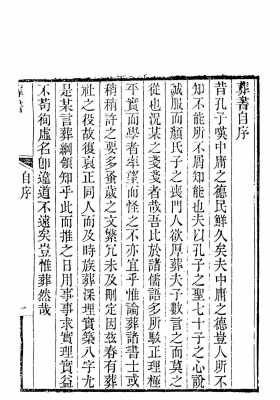 葬書自序
昔孔子嘆中庸之德民鮮久矣夫中庸之德豈人所不
知不能所不屑知能也夫以孔子之聖七十子之心說
誠服而顏氏子之喪門人欲厚葬夫子數言之而莫之
從也況某之戔戔者哉吾比於諸儒語多所駁正理極
平實而學者率望而怪之不亦宜乎惟論葬諸書士或
稍稍許之要多蚤歲之文繁冗未及刪定因茲春有葬
社之役故復哀正同人而及時族葬深埋實築八字尤
是某言葬綱領知乎此而推之日用事事求實理實益
不苟徇虛名卽違道不遠矣豈惟葬然哉
葬書
自序
一